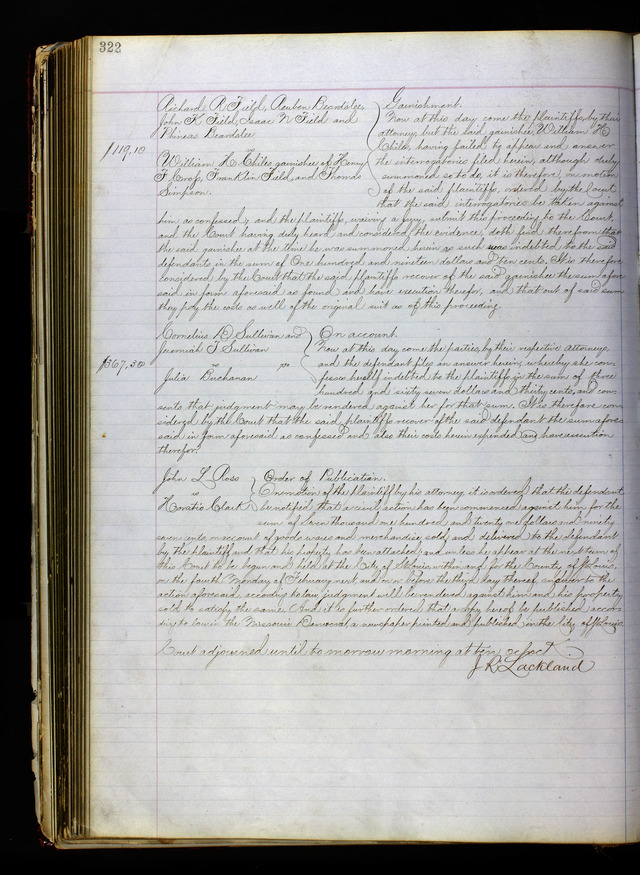 322
Richard R. Field, Reuben Beardslee,
John K. Field, Isaac N. Field and
Phineas Beardslee
$119,10
William H. Chiles, garnishee of Henry
T. Cross, Franklin Field, and Thomas
Simpson.
Garnishment.
Now at this day come the plaintiffs, by their
attorney, but the said garnishee, William H.
Chiles, having failed to appear and answer
the interrogatories filed herein, although duly
summoned so to do, it is therefore, on motion
of the said plaintiffs, ordered by the Court
that the said interrogatories be taken against
him as confessed; and the plaintiffs, waiving a jury, submit this proceeding to the Court,
and the Court having duly heard and considered the evidence, doth find therefrom that
the said garnishee at the time he was summoned herein as such was indebted to the said
defendants in the sum of One hundred and nineteen dollars and ten cents. It is therefore
considered by the Court that the said plaintiffs recover of the said garnishee the sum afore-
said in form aforesaid as found and have execution therefor, and that out of said sum
they pay the costs as well of the original suit as of this proceeding.
Cornelius D. Sullivan and
Jeremiah F. Sullivan
$367,30
vs
Julia Buchanan
On account.
Now at this day come the parties, by their respective attorneys,
and the defendant files an answer herein, whereby she con-
fesses herself indebted to the plaintiffs in the sum of three
hundred and sixty seven dollars and thirty cents, and con-
sents that judgment may be rendered against her for that sum. It is therefore con-
sidered by the Court that the said plaintiffs recover of the said defendant the sum afore-
said in form aforesaid as confessed and also their costs herein expended and have execution
therefor.
John L. Ross
vs
Horatio Clark
Order of Publication.
On motion of the plaintiff by his attorney, it is ordered that the defendant
be notified that a civil action has been commenced against him for the
sum of Seven thousand one hundred and twenty one dollars and ninety
seven cents, on account of goods wares and merchandise, sold, and delivered to the defendant
by the plaintiff and that his property has been attached, and unless he appear at the next term of
this Court to be begun and held at the City of St. Louis, within and for the County of St. Louis,
on the fourth Monday of February next and on or before the third day thereof, answer to the
action aforesaid, according to law, judgment will be rendered against him and his property
sold to satisfy the same. And it is further ordered that a copy hereof be published accor-
ding to law in the Missouri Democrat, a newspaper printed and published in the City of St. Louis.
Court adjourned until to morrow morning at ten o'clock.
J. R. Lackland